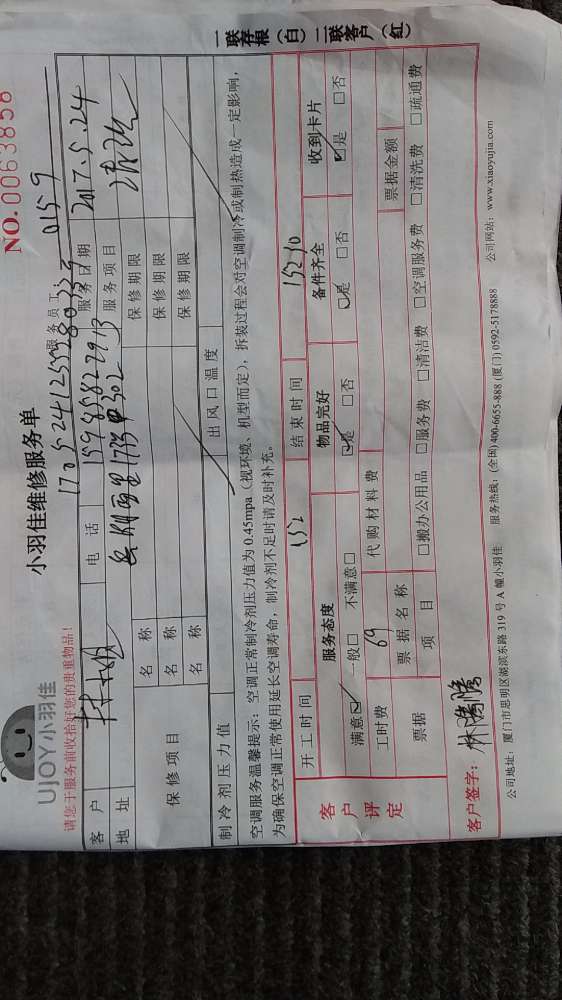 UJOY小羽佳
小羽佳维修服务单
NO.0063858
请您于服务前收拾好您的贵重物品!
服务员工: 0159
客户 电话 服务日期 2017.5.24
地址 服务项目
保修项目 名称 保修期限
名称 保修期限
名称 保修期限
制冷剂压力值 出风口温度
空调服务温馨提示: 空调正常制冷剂压力值为0.45mpa(视环境、机型而定), 拆装过程会对空调制冷或制热造成一定影响,
为确保空调正常使用延长空调寿命, 制冷剂不足时请及时补充。
客户评定
开工时间 结束时间
服务态度 物品完好 备件齐全 收到卡片
满意☑ 一般□ 不满意□ ☑是 □否 ☑是 □否 ☑是 □否
工时费 69 代购材料费
票据 票据名称 票据金额
项目 □搬办公用品 □服务费 □清洁费 □空调服务费 □清洗费 □疏通费
客户签字:
公司地址: 厦门市思明区湖滨东路319号A幢小羽佳 服务热线: (全国)400-6655-888 (厦门) 0592-5178888 公司网站: www.xiaoyujia.com
一联存根(白)二联客户(红)